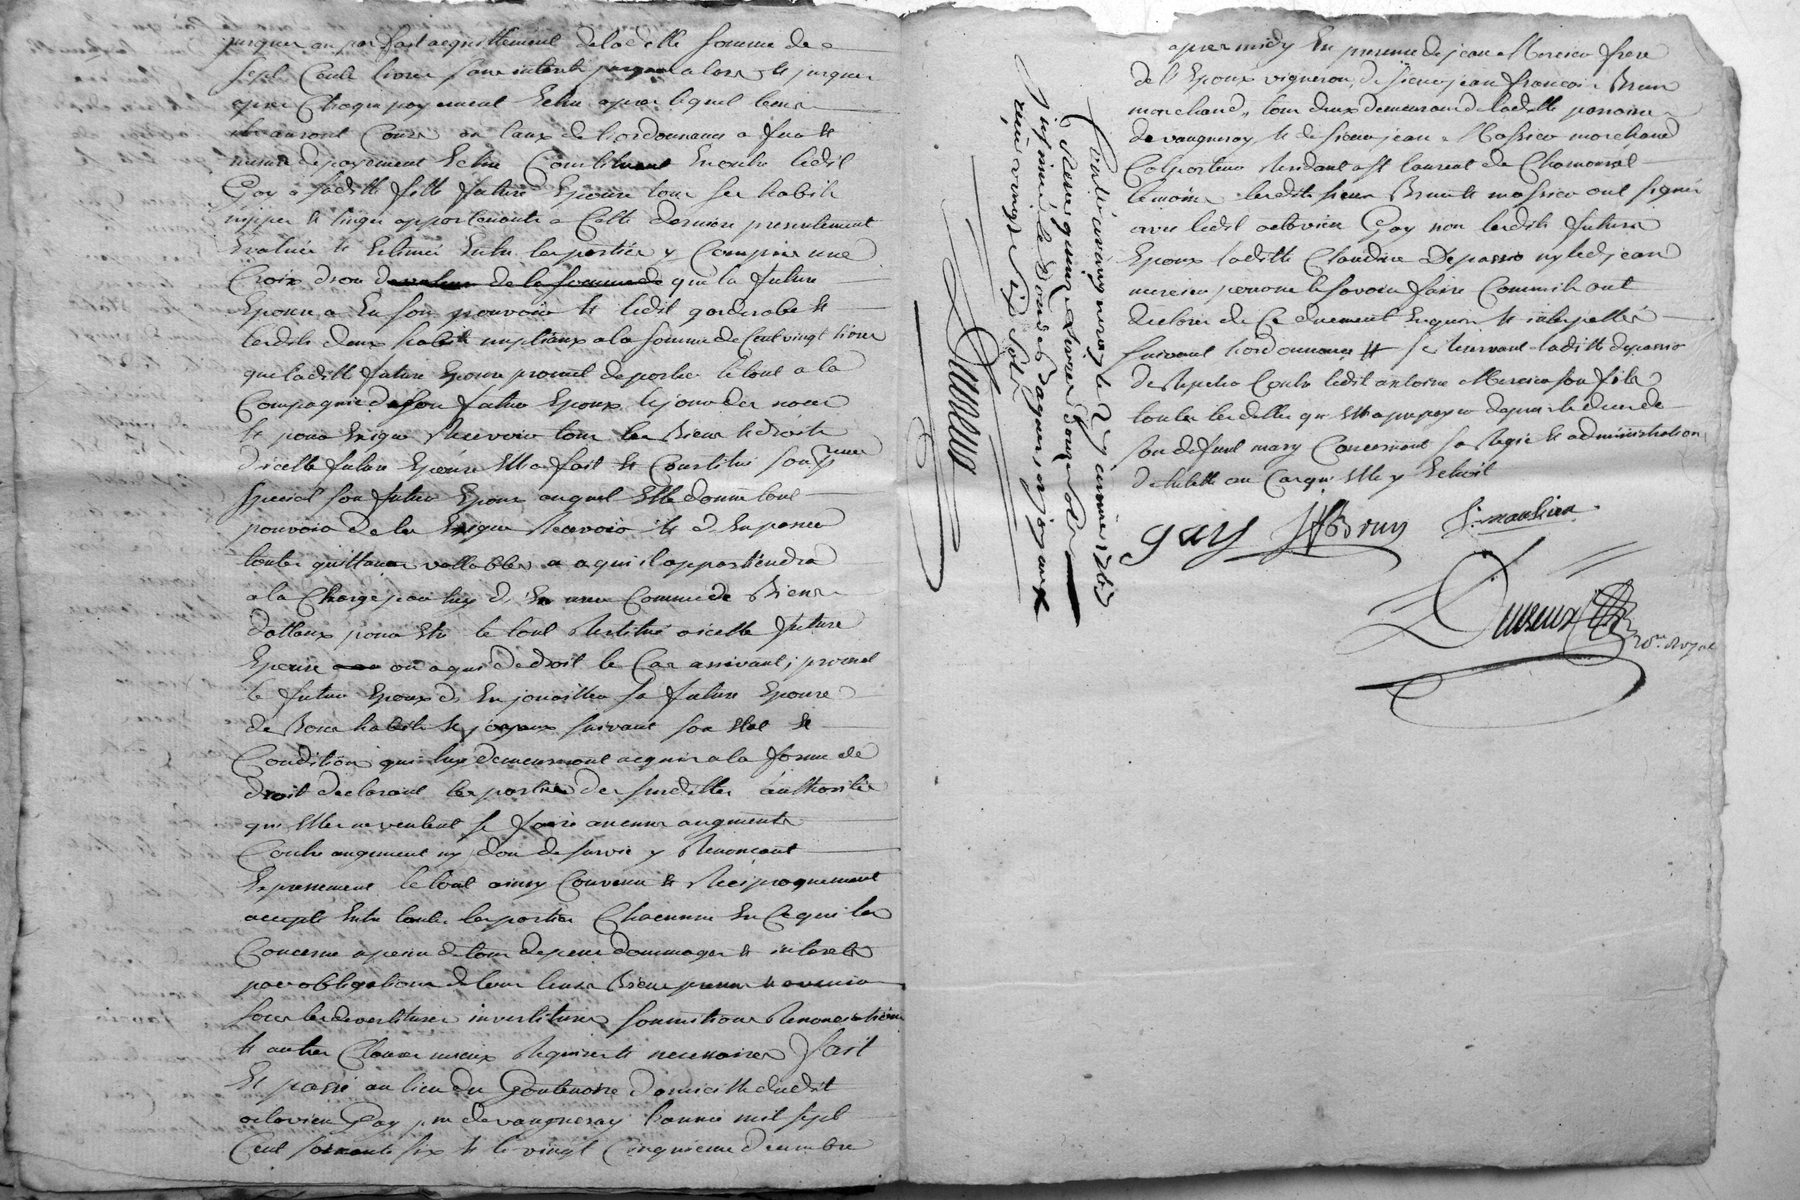 jusques au parfait acquittement de ladette somme de
sept Cent livres sans interets jusques alors et jusques
apres Chaque payement Echu apres lequel tems
auront Cours au taux de l'ordonnance a fure et
mesure de payement Echu Constituant En outre ledit
Gay a saditte fille future Epouse tous ses habits
nippes et linges appartenants a Cette derniere presentement
Evalués et Estimés Entre les parties y Compris une
Croix d'or de valeur de la somme de que la future
Epouse a En son pouvoir et ledit garderobe et
lesdits deux habits nuptiaux a la somme de Cent vingt livres
que laditte future Epouse promet de porter le tout a la
Compagnie de son futur Epoux le jour des noces
et pour Exiger Recevoir tous les Biens et droits
d'icelle future Epouse Elle a fait et Constitué son preur
special son futur Epoux auquel Elle donne tout
pouvoir de les Exiger Recevoir et d'En passer
toutes quittances vallables a qui il appartiendra
a la Charge par luy d'En Comme de Biens
dottaux pour Etre le tout Restitué a icelle future
Epouse ou a qui de droit le Cas arrivant, promet
le futur Epoux d'En jouailler sa future Epouse
de Bons habits et joyaux suivant son Etat et
Condition qui luy demeureront acquis a la forme de
droit declarant les parties des susdittes authorités
qu'Elles ne veulent se faire aucuns augments
Contre augment ny don de survie y Renoncant
Expressement le tout ainsy Convenu et Reciproquement
accepté Entre toutes les parties Chacunne En Ce qui les
Concerne a peine de tous depens dommages et interets
par obligations de tous leurs Biens presents et avenir
sous les devestitures investitures soumissions Renonciations
et autres Clauses mieux Requises et necessaires fait
Et passé au lieu du Goutenoire domicille dudit
octavien Gay psse de vaugneray l'année mil sept
Cent soixante six et le vingt Cinquieme decembre
Controllé a vaugneray le 27 decembre 1766
Reçu quinze Livres douze sols
y insinué le don des bagues et joyaux
reçu vingt six sols
Dumeux
apres midy En presence de jean Mercier frere
de l'Epoux vigneron, de sieur jean francois Brun
marchand, tous deux demeurant de laditte parroisse
de vaugneray et de sieur jean Massieu marchand
Colporteur Residant a St laurent de Chamousset
temoins lesdits sieurs Brun et massieu ont signé
avec ledit octavien Gay non lesdits futurs
Epoux laditte Claudine Depassio ny ledit jean
mercier pour ne le savoir faire Comme ils ont
declaré de Ce duement Enquis et interpellés
suivant l'ordonnance # se Reservant laditte depassio
de Repeter Contre ledit antoine Mercier son fils
toutes les dettes qu'Elle a pu payer depuis le deces de
son defunt mary Concernant sa Regie et administration
de telle au Cas qu'Elle y Echoit
gay JfBrun J. massieu
Dumeux
nore Royal